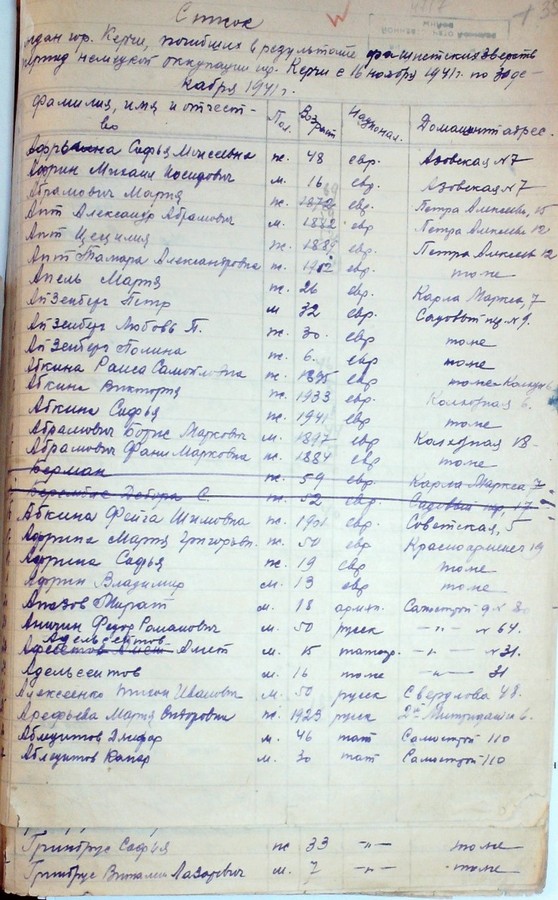 Список
граждан гор. Керчи, погибших в результате фашистских зверств
в период немецкой оккупации гор. Керчи с 16 ноября 1941 г. по 30 де-
кабря 1941 г.
Фамилия, имя и отчест- Пол. Возраст Национал. Домашний адрес.
во
Софья Моисеевна ж. 48 евр. Азовская №7
Африн Михаил Иосифович м. 16 евр. Азовская №7
Абрамович Мария ж. 1872 евр. Петра Алексеева, 15
Апт Александр Абрамович м. 1882 евр Петра Алексеева 12
Апт Цецилия ж. евр. Петра Алексеев 12
Апт Тамара Александровна ж. евр. тоже
Апель Мария ж. 26 евр. Карла Маркса, 7
Айзенберг Петр м 32 евр. Садовый №9.
Айзенберг Любовь П. ж. 30. евр тоже
Айзенберг Полина ж. 6. евр тоже
Абкина Раиса Самойловна ж. 1895 евр
Абкина Виктория ж. 1933 евр. Колхозная 6.
Абкина Софья ж. 1941 евр. тоже
Абрамович Борис Маркович м. 1897 евр. Колхозная 18-
Абрамович Фани Марковна ж. 1884 евр. тоже
Берман ж. 59 евр. Карла Маркса 7
Дебора С. ж. 52 евр. Садовый 17
Абкина Фейга Шимовна ж. 1901 евр. Советская, 5
Африна Мария Григорьевн. ж. 50 евр. Красноармейск 19
Африна Софья ж. 19 евр тоже
Африн Владимир м. 13 евр тоже
Апазов м. 18 армян. Самострой д №
Аничин Федор Романович м. 50 русск -"- №64.
Адельсеитов
Амет м. 15 татар. -"- №31.
Адельсеитов м. 16 тоже -"- 31
Алексеенко Тихон Иванович м. 50 русск Свердлова 48.
Арефьева Мария ж. 1923 русск 2я Митридатск 6.
Аблецитов м. 46 тат Самострой 110
Аблецитов м. 30 тат Самострой 110
Гринбрус Софья ж 33 -"- тоже
Гринбрус Виталий Лазаревич м. 7 -"- тоже